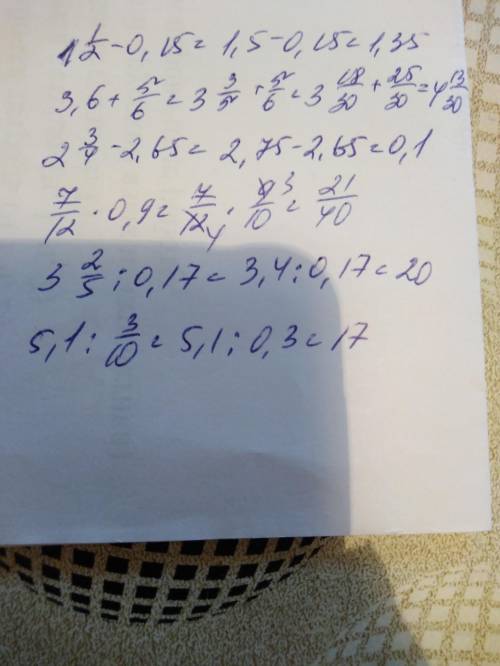 1 1/2 - 0,15 = 1,5 - 0,15 = 1,35
3,6 + 5/6 = 3 3/5 + 5/6 = 3 18/30 + 25/30 = 4 13/30
2 3/4 - 2,65 = 2,75 - 2,65 = 0,1
7/12 · 0,9 = 7/12 4 · 9 3/10 = 21/40
3 2/5 : 0,17 = 3,4 : 0,17 = 20
5,1 : 3/10 = 5,1 : 0,3 = 17